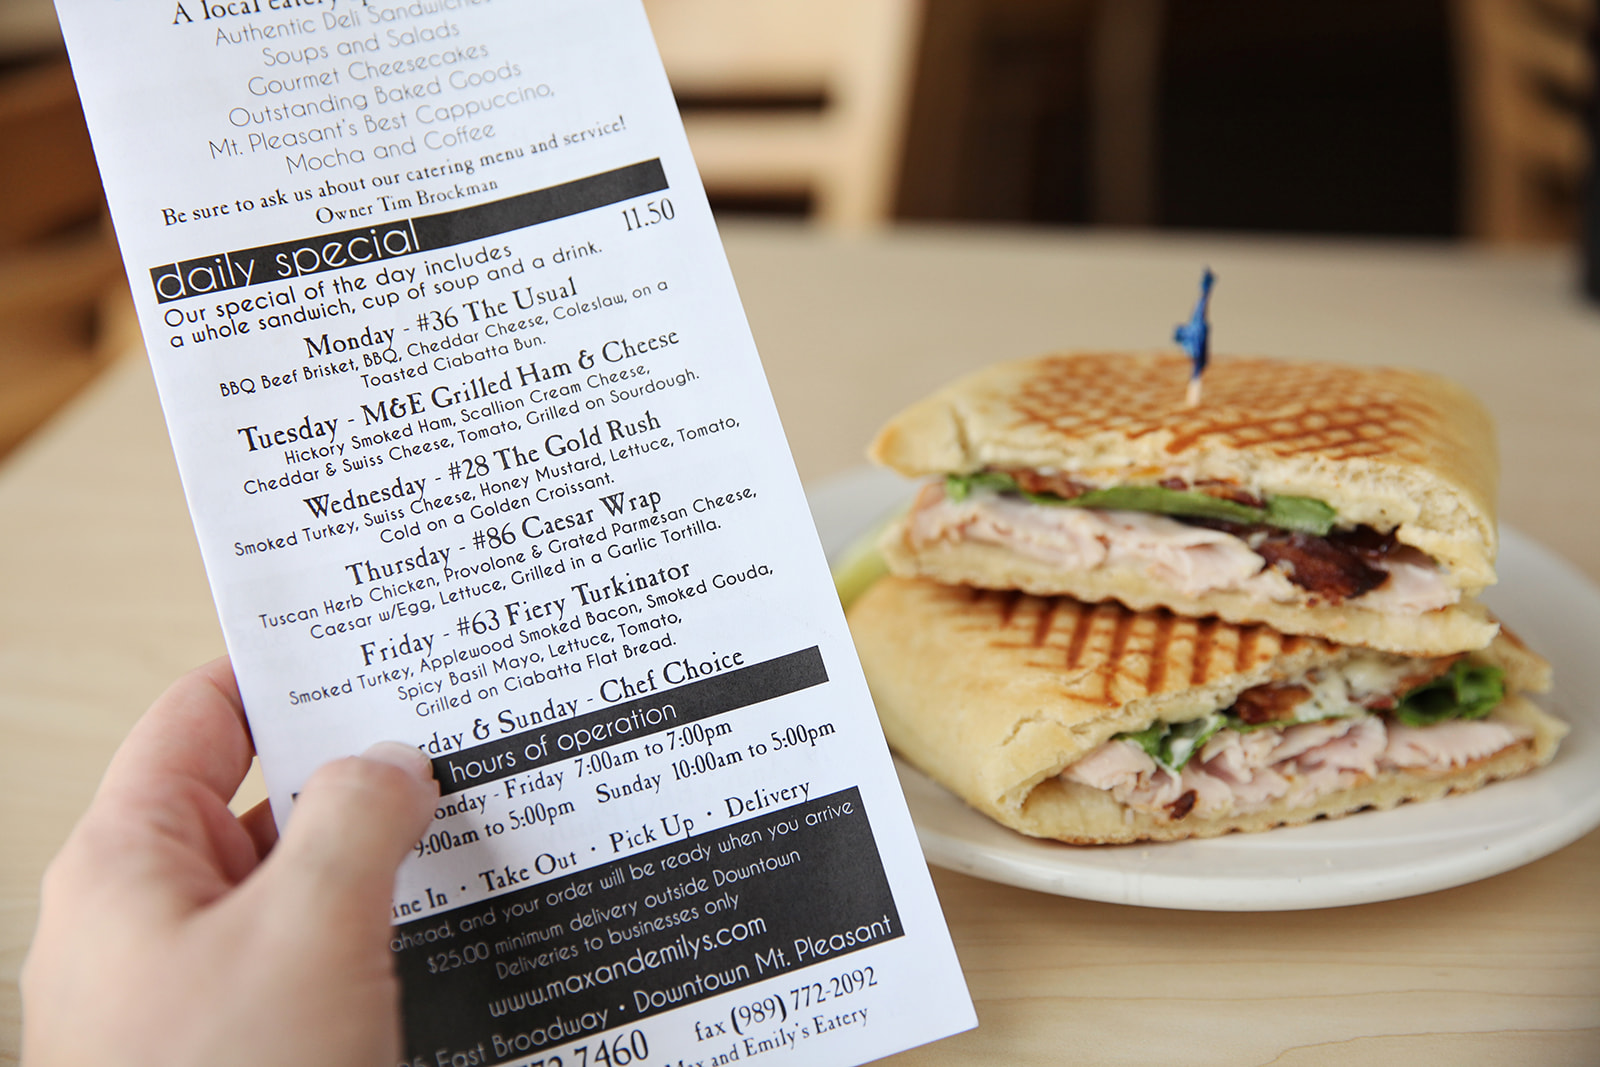 A local eatery
Authentic Deli Sandwiches
Soups and Salads
Gourmet Cheesecakes
Outstanding Baked Goods
Mt. Pleasant's Best Cappuccino,
Mocha and Coffee
Be sure to ask us about our catering menu and service!
Owner Tim Brockman
daily special
11.50
Our special of the day includes
a whole sandwich, cup of soup and a drink.
Monday - #36 The Usual
BBQ Beef Brisket, BBQ, Cheddar Cheese, Coleslaw, on a
Toasted Ciabatta Bun.
Tuesday - M&E Grilled Ham & Cheese
Hickory Smoked Ham, Scallion Cream Cheese,
Cheddar & Swiss Cheese, Tomato, Grilled on Sourdough.
Wednesday - #28 The Gold Rush
Smoked Turkey, Swiss Cheese, Honey Mustard, Lettuce, Tomato,
Cold on a Golden Croissant.
Thursday - #86 Caesar Wrap
Tuscan Herb Chicken, Provolone & Grated Parmesan Cheese,
Caesar w/Egg, Lettuce, Grilled in a Garlic Tortilla.
Friday - #63 Fiery Turkinator
Smoked Turkey, Applewood Smoked Bacon, Smoked Gouda,
Spicy Basil Mayo, Lettuce, Tomato,
Grilled on Ciabatta Flat Bread.
rday & Sunday - Chef Choice
hours of operation
onday - Friday 7:00am to 7:00pm
9:00am to 5:00pm Sunday 10:00am to 5:00pm
ine In · Take Out · Pick Up · Delivery
ahead, and your order will be ready when you arrive
$25.00 minimum delivery outside Downtown
Deliveries to businesses only
www.maxandemilys.com
East Broadway · Downtown Mt. Pleasant
772-7460 fax (989) 772-2092
Max and Emily's Eatery